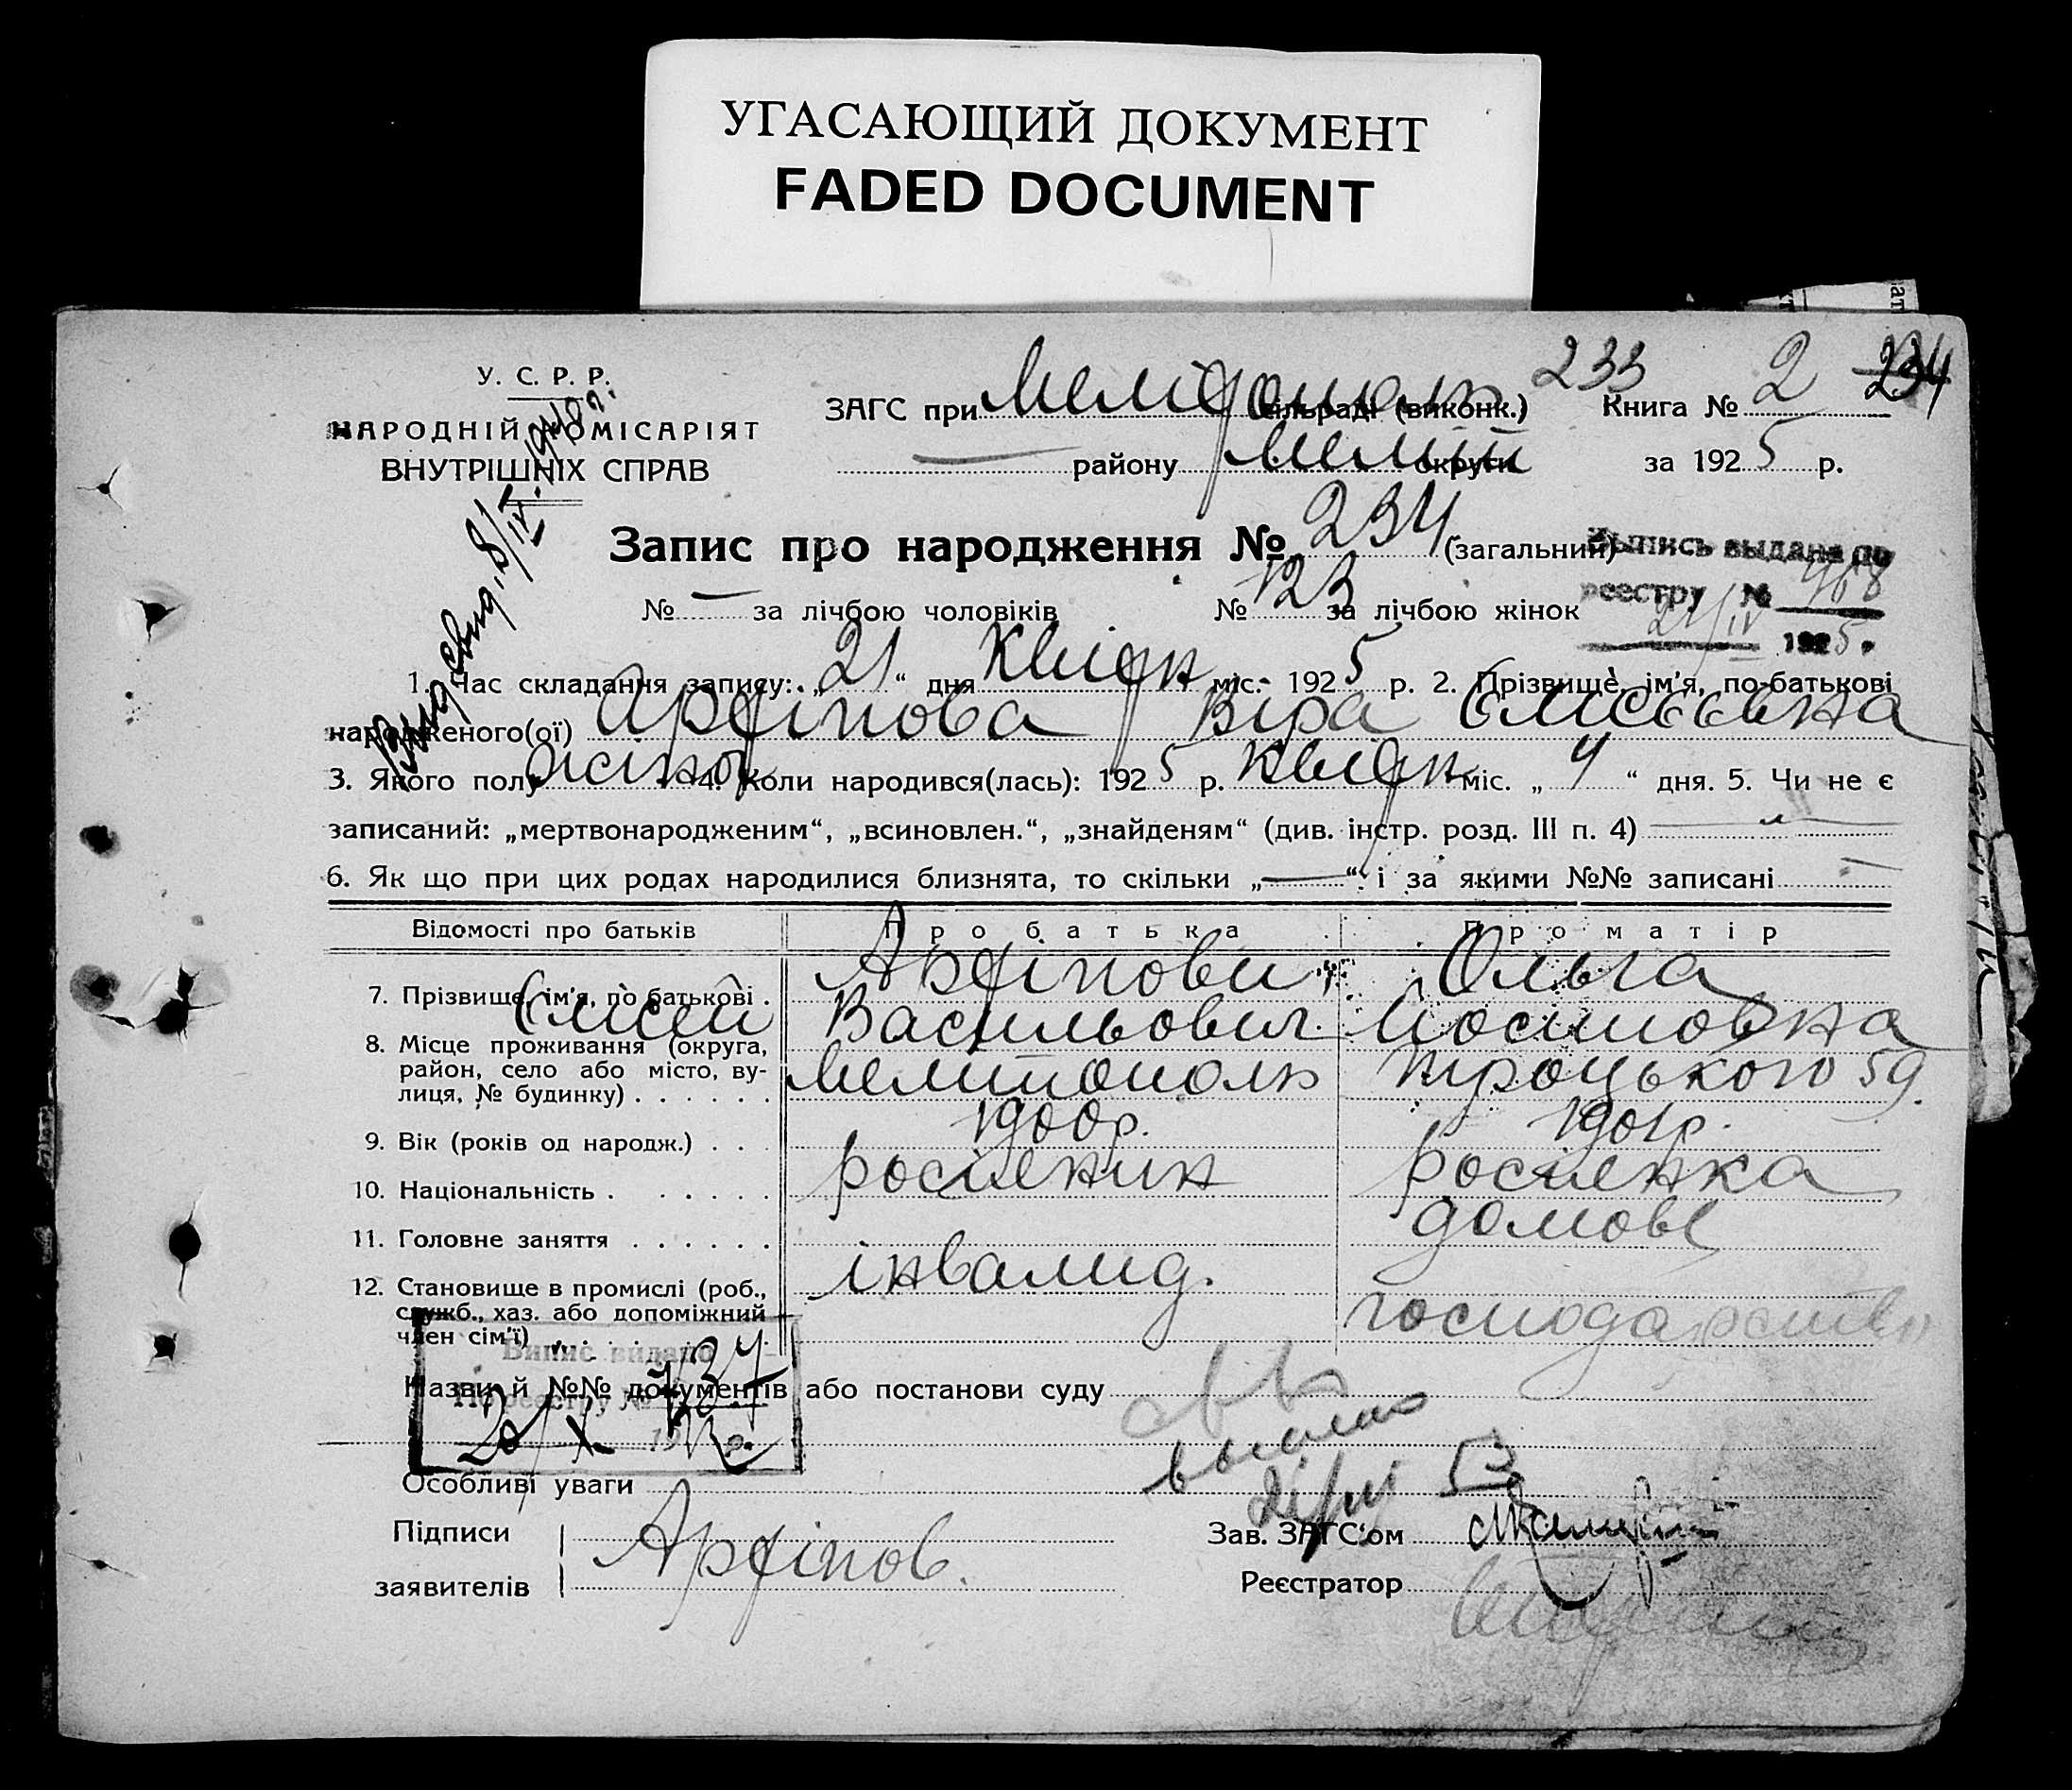 УГАСАЮЩИЙ ДОКУМЕНТ
FADED DOCUMENT
У. С. Р. Р.
НАРОДНІЙ КОМІСАРІЯТ
ВНУТРІШНІХ СПРАВ
ЗАГС при Мелітополь сільраді (виконк.)
233
Книга № 2 234
— району Меліт округи за 1925 р.
Запис про народження № 234 (загальний)
Выпись выдана по
реестру № 968
21/IV 1925.
№ — за лічбою чоловіків № 123 за лічбою жінок
1. Час складання запису: „21“ дня Квітн міс. 1925 р. 2. Прізвище, ім'я, по-батькові
народженого(ої) Арфіпова Віра Єлисеєвна
3. Якого полу жіноч 4. Коли народився(лась): 1925 р. Квітн міс. „4“ дня. 5. Чи не є
записаний: „мертвонародженим“, „всиновлен.“, „знайденям“ (див. інстр. розд. III п. 4)
6. Як що при цих родах народилися близнята, то скільки „—“ і за якими №№ записані —
Відомості про батьків Про батька Про матір
7. Прізвище, ім'я, по батькові . Арфіпови Ольга
Єлісей Васильович Йосиповна
8. Місце проживання (округа,
район, село або місто, ву-
лиця, № будинку) . . . . . . Мелитополь Троцького 59.
9. Вік (років од народж.) . . . 1900р. 1901р.
10. Національність . . . . . . росіянин росіянка
11. Головне заняття . . . . . . домове
12. Становище в промислі (роб.,
служб., хаз. або допоміжний
член сім'ї) інвалид. господарство
Випис видано
По реєстру №
20/X
Назви й №№ документів або постанови суду
Особливі уваги
Підписи
заявителів Арфіпов.
Зав. ЗАГС'ом
Реєстратор